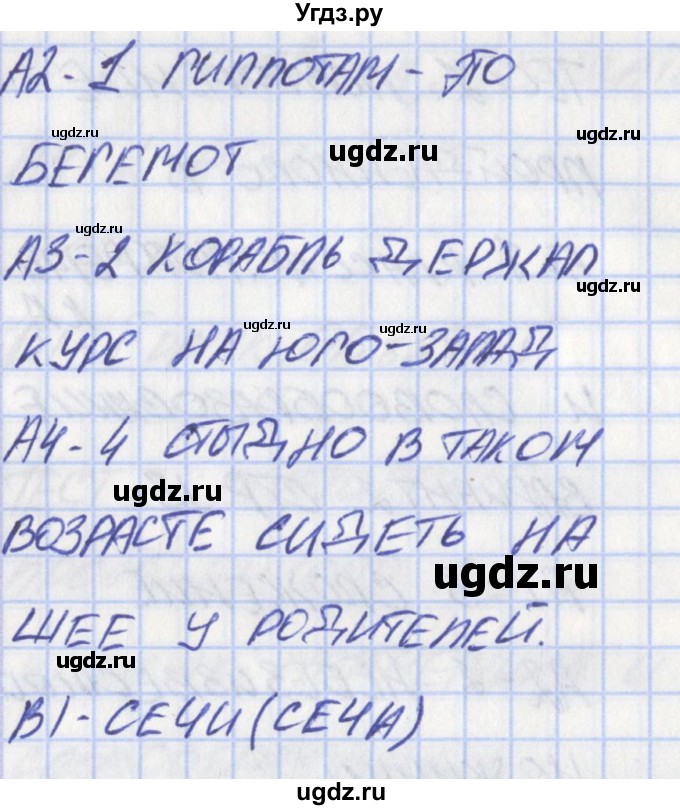 Угдз.ру
А2-1 ГИППОТАМ - ЭТО
ugdz.ru
ugdz.ru
БЕГЕМОТ
ugdz.ru
А3-2 КОРАБЛЬ ДЕРЖАЛ
ugdz.ru
ugdz.ru
ugdz.ru
КУРС НА ЮГО-ЗАПАД
А4-4 СТЫДНО В ТАКОМ
ugdz.ru
ВОЗРАСТЕ СИДЕТЬ НА
ugdz.ru
ШЕЕ У РОДИТЕЛЕЙ.
ugdz.ru
В1-СЕЧИ(СЕЧА)
ugdz.ru